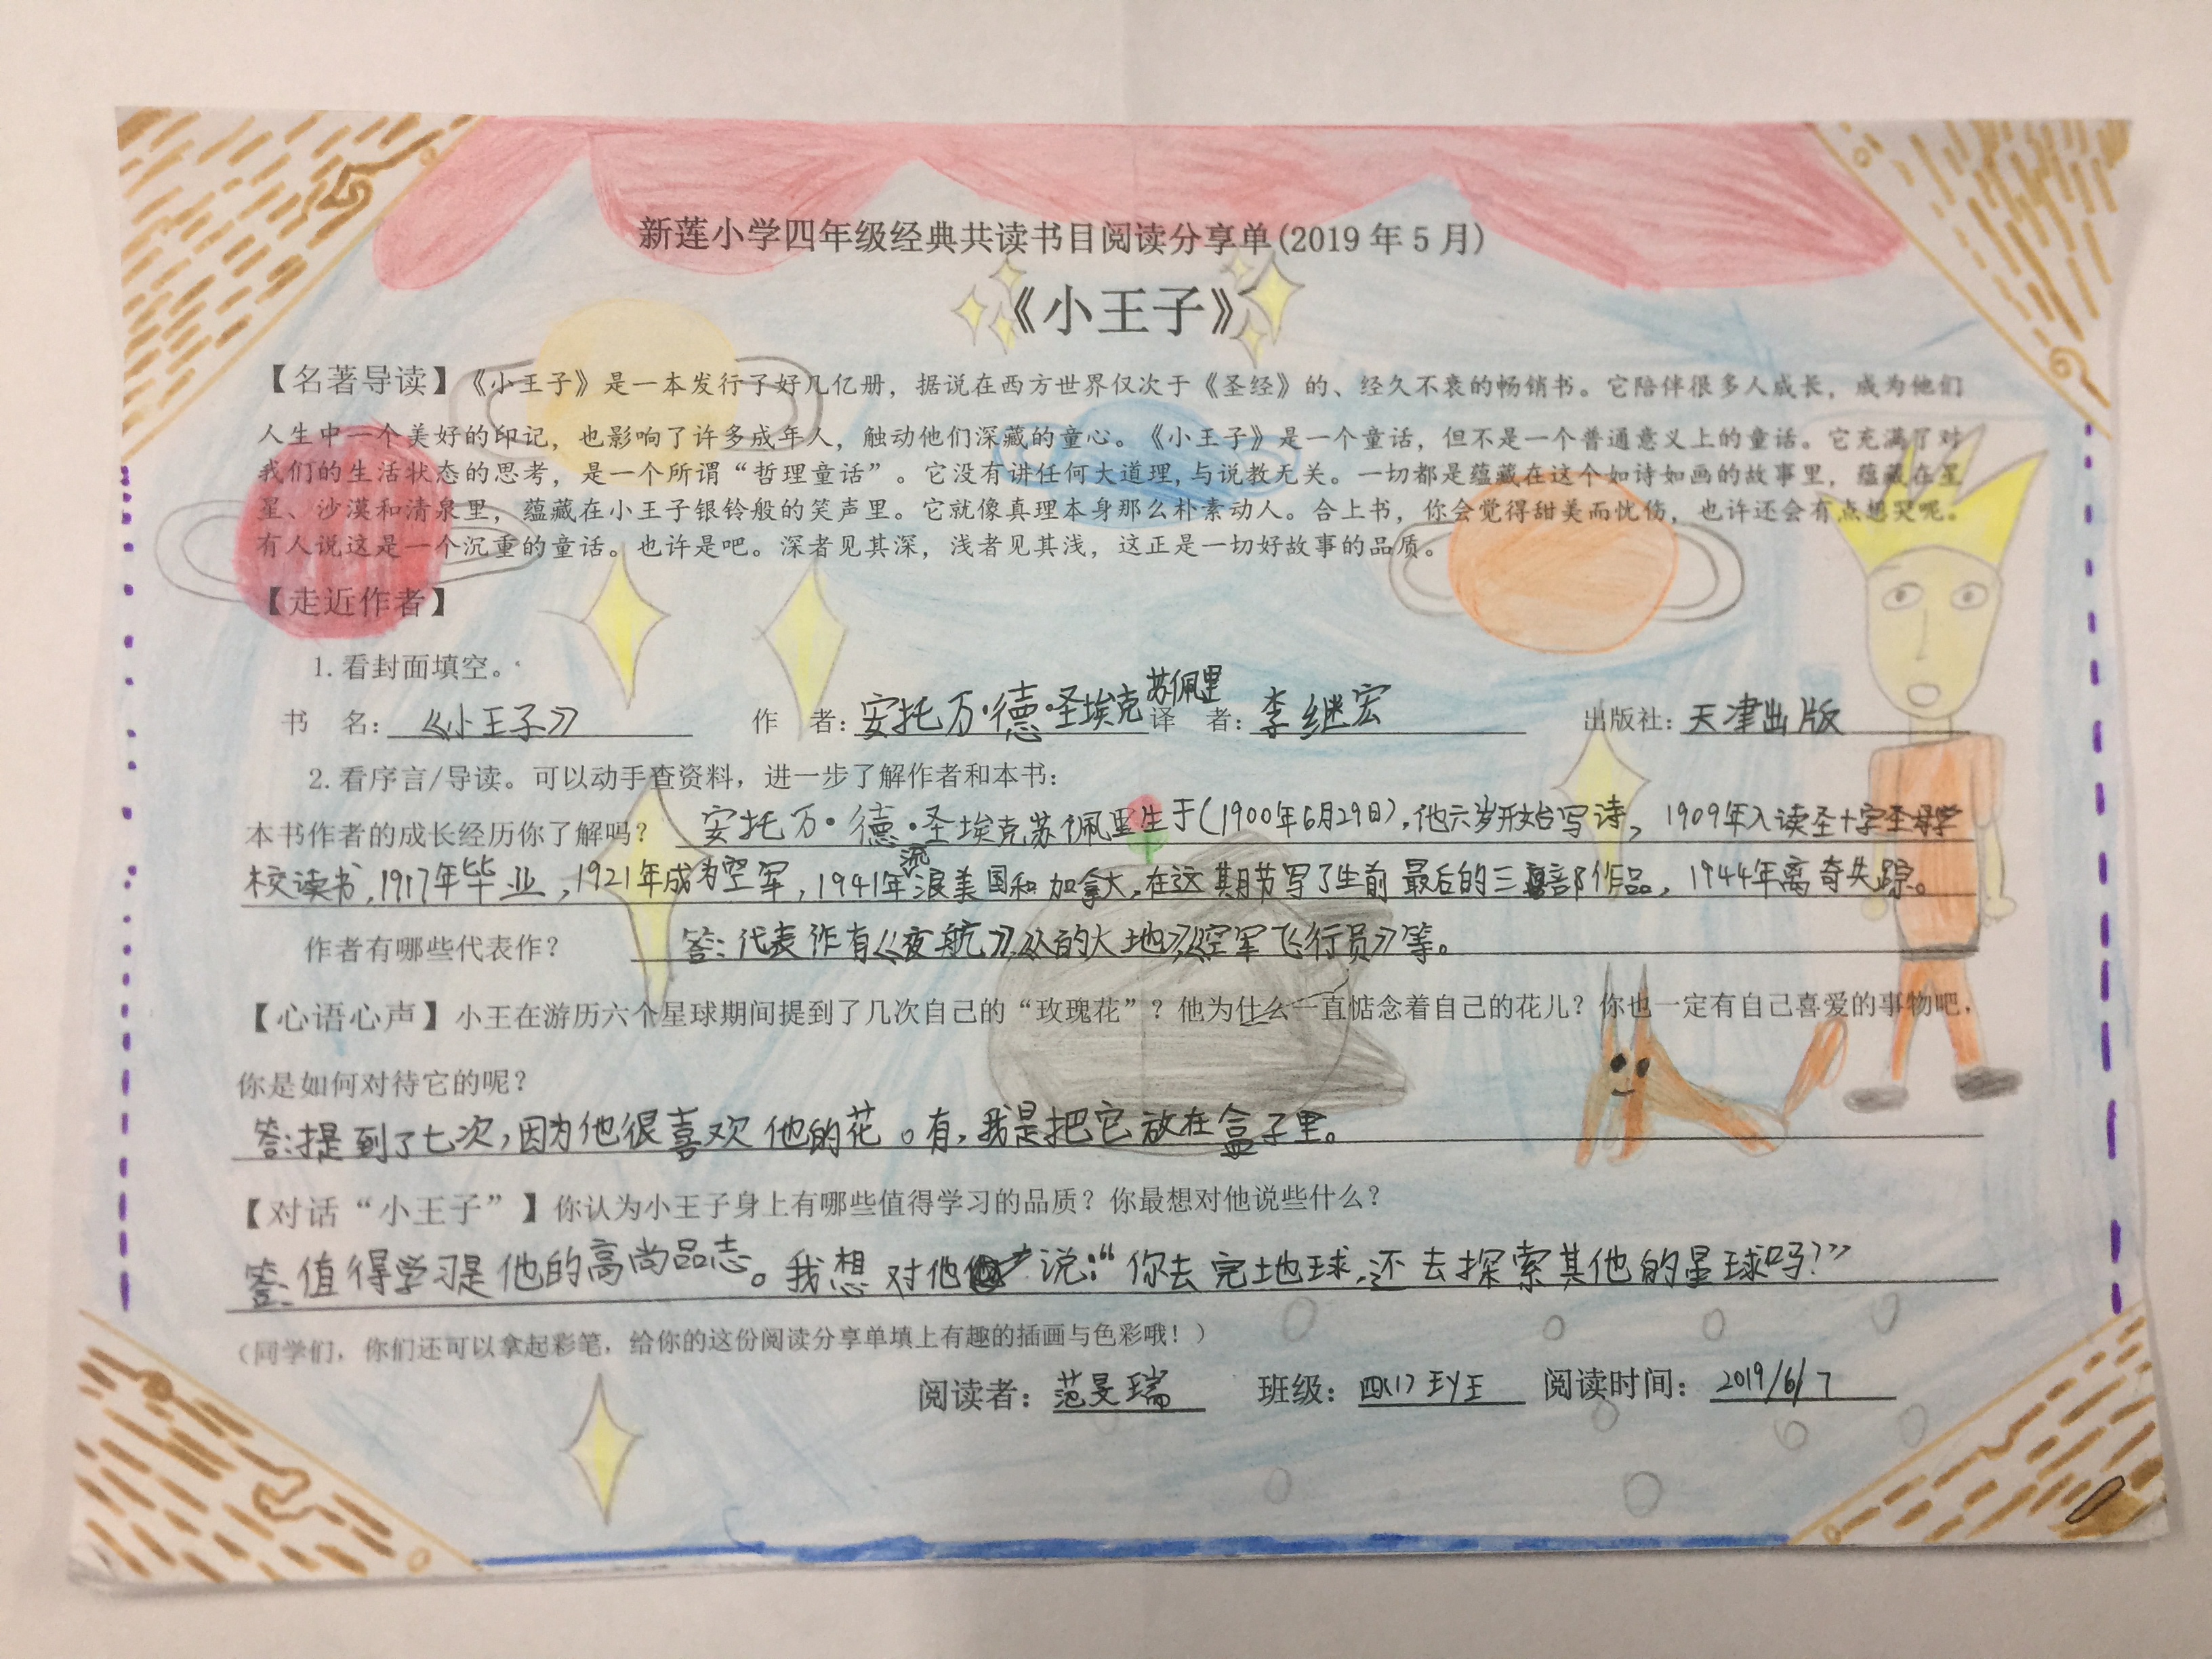 新莲小学四年级经典共读书目阅读分享单(2019年5月)
《小王子》
【名著导读】《小王子》是一本发行了好几亿册，据说在西方世界仅次于《圣经》的、经久不衰的畅销书。它陪伴很多人成长，成为他们
人生中一个美好的印记，也影响了许多成年人，触动他们深藏的童心。《小王子》是一个童话，但不是一个普通意义上的童话。它充满了对
我们的生活状态的思考，是一个所谓“哲理童话”。它没有讲任何大道理，与说教无关。一切都是蕴藏在这个如诗如画的故事里，蕴藏在星
星、沙漠和清泉里，蕴藏在小王子银铃般的笑声里。它就像真理本身那么朴素动人。合上书，你会觉得甜美而忧伤，也许还会有点想哭呢。
有人说这是一个沉重的童话。也许是吧。深者见其深，浅者见其浅，这正是一切好故事的品质。
【走近作者】
1.看封面填空。
书 名：《小王子》 作 者：安托万·德·圣埃克苏佩里 译 者：李继宏 出版社：天津出版
2.看序言/导读。可以动手查资料，进一步了解作者和本书：
本书作者的成长经历你了解吗？ 安托万·德·圣埃克苏佩里生于(1900年6月29日)，他六岁开始写诗，1909年入读圣十字圣母学
校读书，1917年毕业，1921年成为空军，1941年流浪美国和加拿大，在这期节写了生前最后的三部作品，1944年离奇失踪。
作者有哪些代表作？ 答：代表作有《夜航》，《人的大地》，《空军飞行员》等。
【心语心声】小王在游历六个星球期间提到了几次自己的“玫瑰花”？他为什么一直惦念着自己的花儿？你也一定有自己喜爱的事物吧，
你是如何对待它的呢？
答：提到了七次，因为他很喜欢他的花。有，我是把它放在盒子里。
【对话“小王子”】你认为小王子身上有哪些值得学习的品质？你最想对他说些什么？
答：值得学习是他的高尚品志。我想对他说：“你去完地球，还去探索其他的星球吗？”
（同学们，你们还可以拿起彩笔，给你的这份阅读分享单填上有趣的插画与色彩哦！）
阅读者：范旻瑞 班级：四(1) 阅读时间：2019/6/7